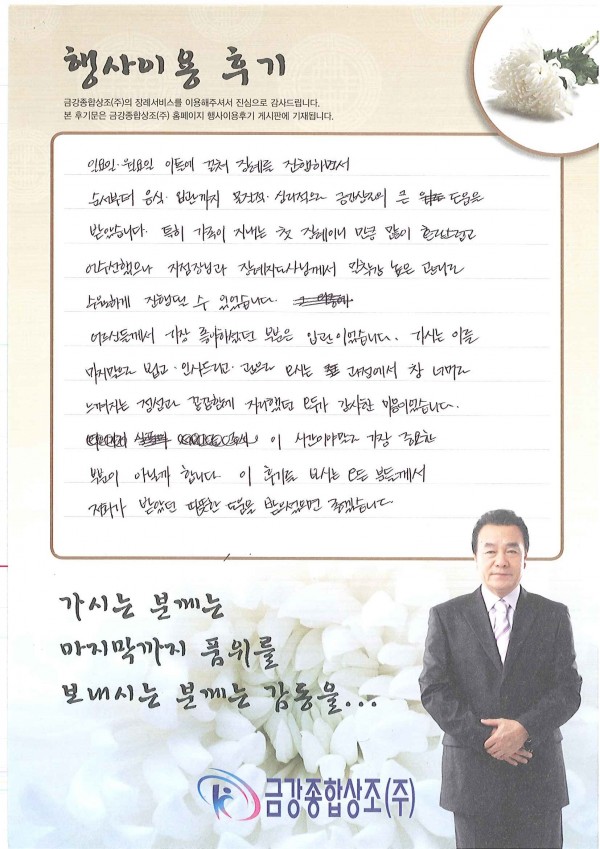 행사이용 후기
금강종합상조(주)의 장례서비스를 이용해주셔서 진심으로 감사드립니다.
본 후기문은 금강종합상조(주) 홈페이지 행사이용후기 게시판에 기재됩니다.
일요일·월요일 이틀에 걸쳐 장례를 진행하면서
순서부터 음식·입관까지 물질적·심리적으로 금강상조의 큰 도움을
받았습니다. 특히 가족이 지내는 첫 장례이니 만큼 많이 혼란스럽고
어수선했으나 지점장님과 장례지도사님께서
수월하게 진행될 수 있었습니다.
어르신들께서 가장 좋아하셨던 부분은 입관이었습니다. 가시는 이를
마지막으로 뵙고·인사드리고·곱으로 모시는 과정에서 창 너머로
느껴지는 정성과 꼼꼼함에 지켜봤던 모두가 감사한 마음이었습니다.
이 시간이야말로 가장 중요한
부분이 아닐까 합니다. 이 후기를 보시는 모든 분들께서
저희가 받았던 따뜻한 도움을 받으셨으면 좋겠습니다
가시는 분께는
마지막까지 품위를
보내시는 분께는 감동을...
금강종합상조(주)